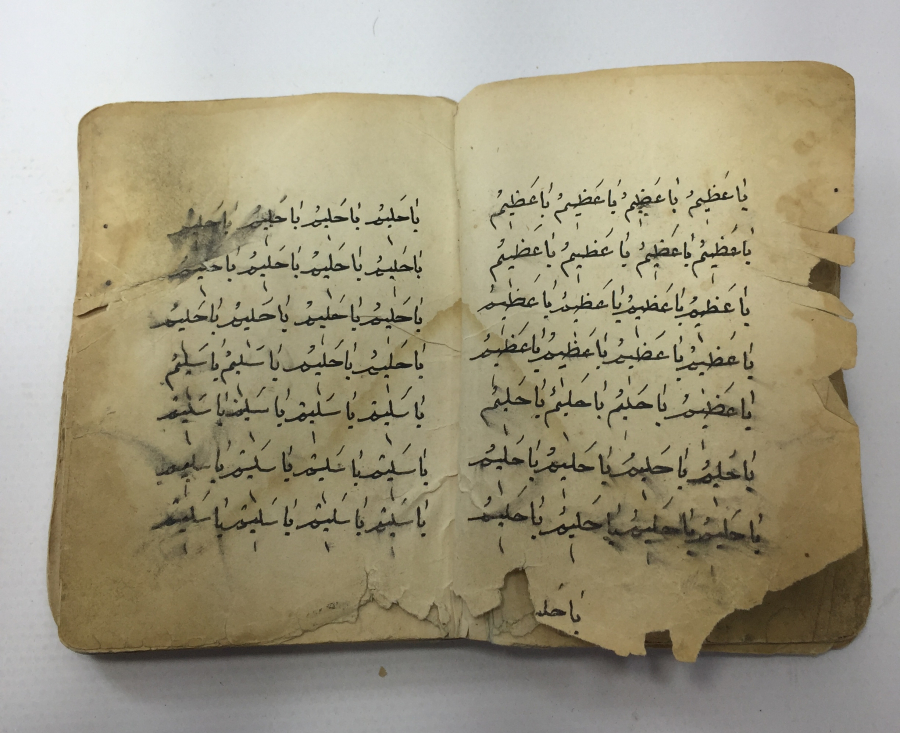 يا عَظيمُ يا عَظيمُ يا عَظيمُ يا عَظيمُ
يا عَظيمُ يا عَظيمُ يا عَظيمُ يا عَظيمُ
يا عَظيمُ يا عَظيمُ يا عَظيمُ يا عَظيمُ
يا عَظيمُ يا عَظيمُ يا عَظيمُ يا عَظيمُ
يا عَظيمُ يا حَليمُ يا حَليمُ يا حَليمُ
يا حَليمُ يا حَليمُ يا حَليمُ يا حَليمُ
يا حَليمُ يا حَليمُ يا حَليمُ يا حَليمُ
يا حَليـ
يا حَليمُ يا حَليمُ يا حَليمُ يا حَليمُ
يا حَليمُ يا حَليمُ يا حَليمُ يا حَليمُ
يا حَليمُ يا حَليمُ يا حَليمُ يا حَليمُ
يا حَليمُ يا حَليمُ يا سَليمُ يا سَليمُ
يا سَليمُ يا سَليمُ يا سَليمُ يا سَليمُ
يا سَليمُ يا سَليمُ يا سَليمُ يا سَليمُ
يا سَليمُ يا سَليمُ يا سَليمُ يا سَليمُ